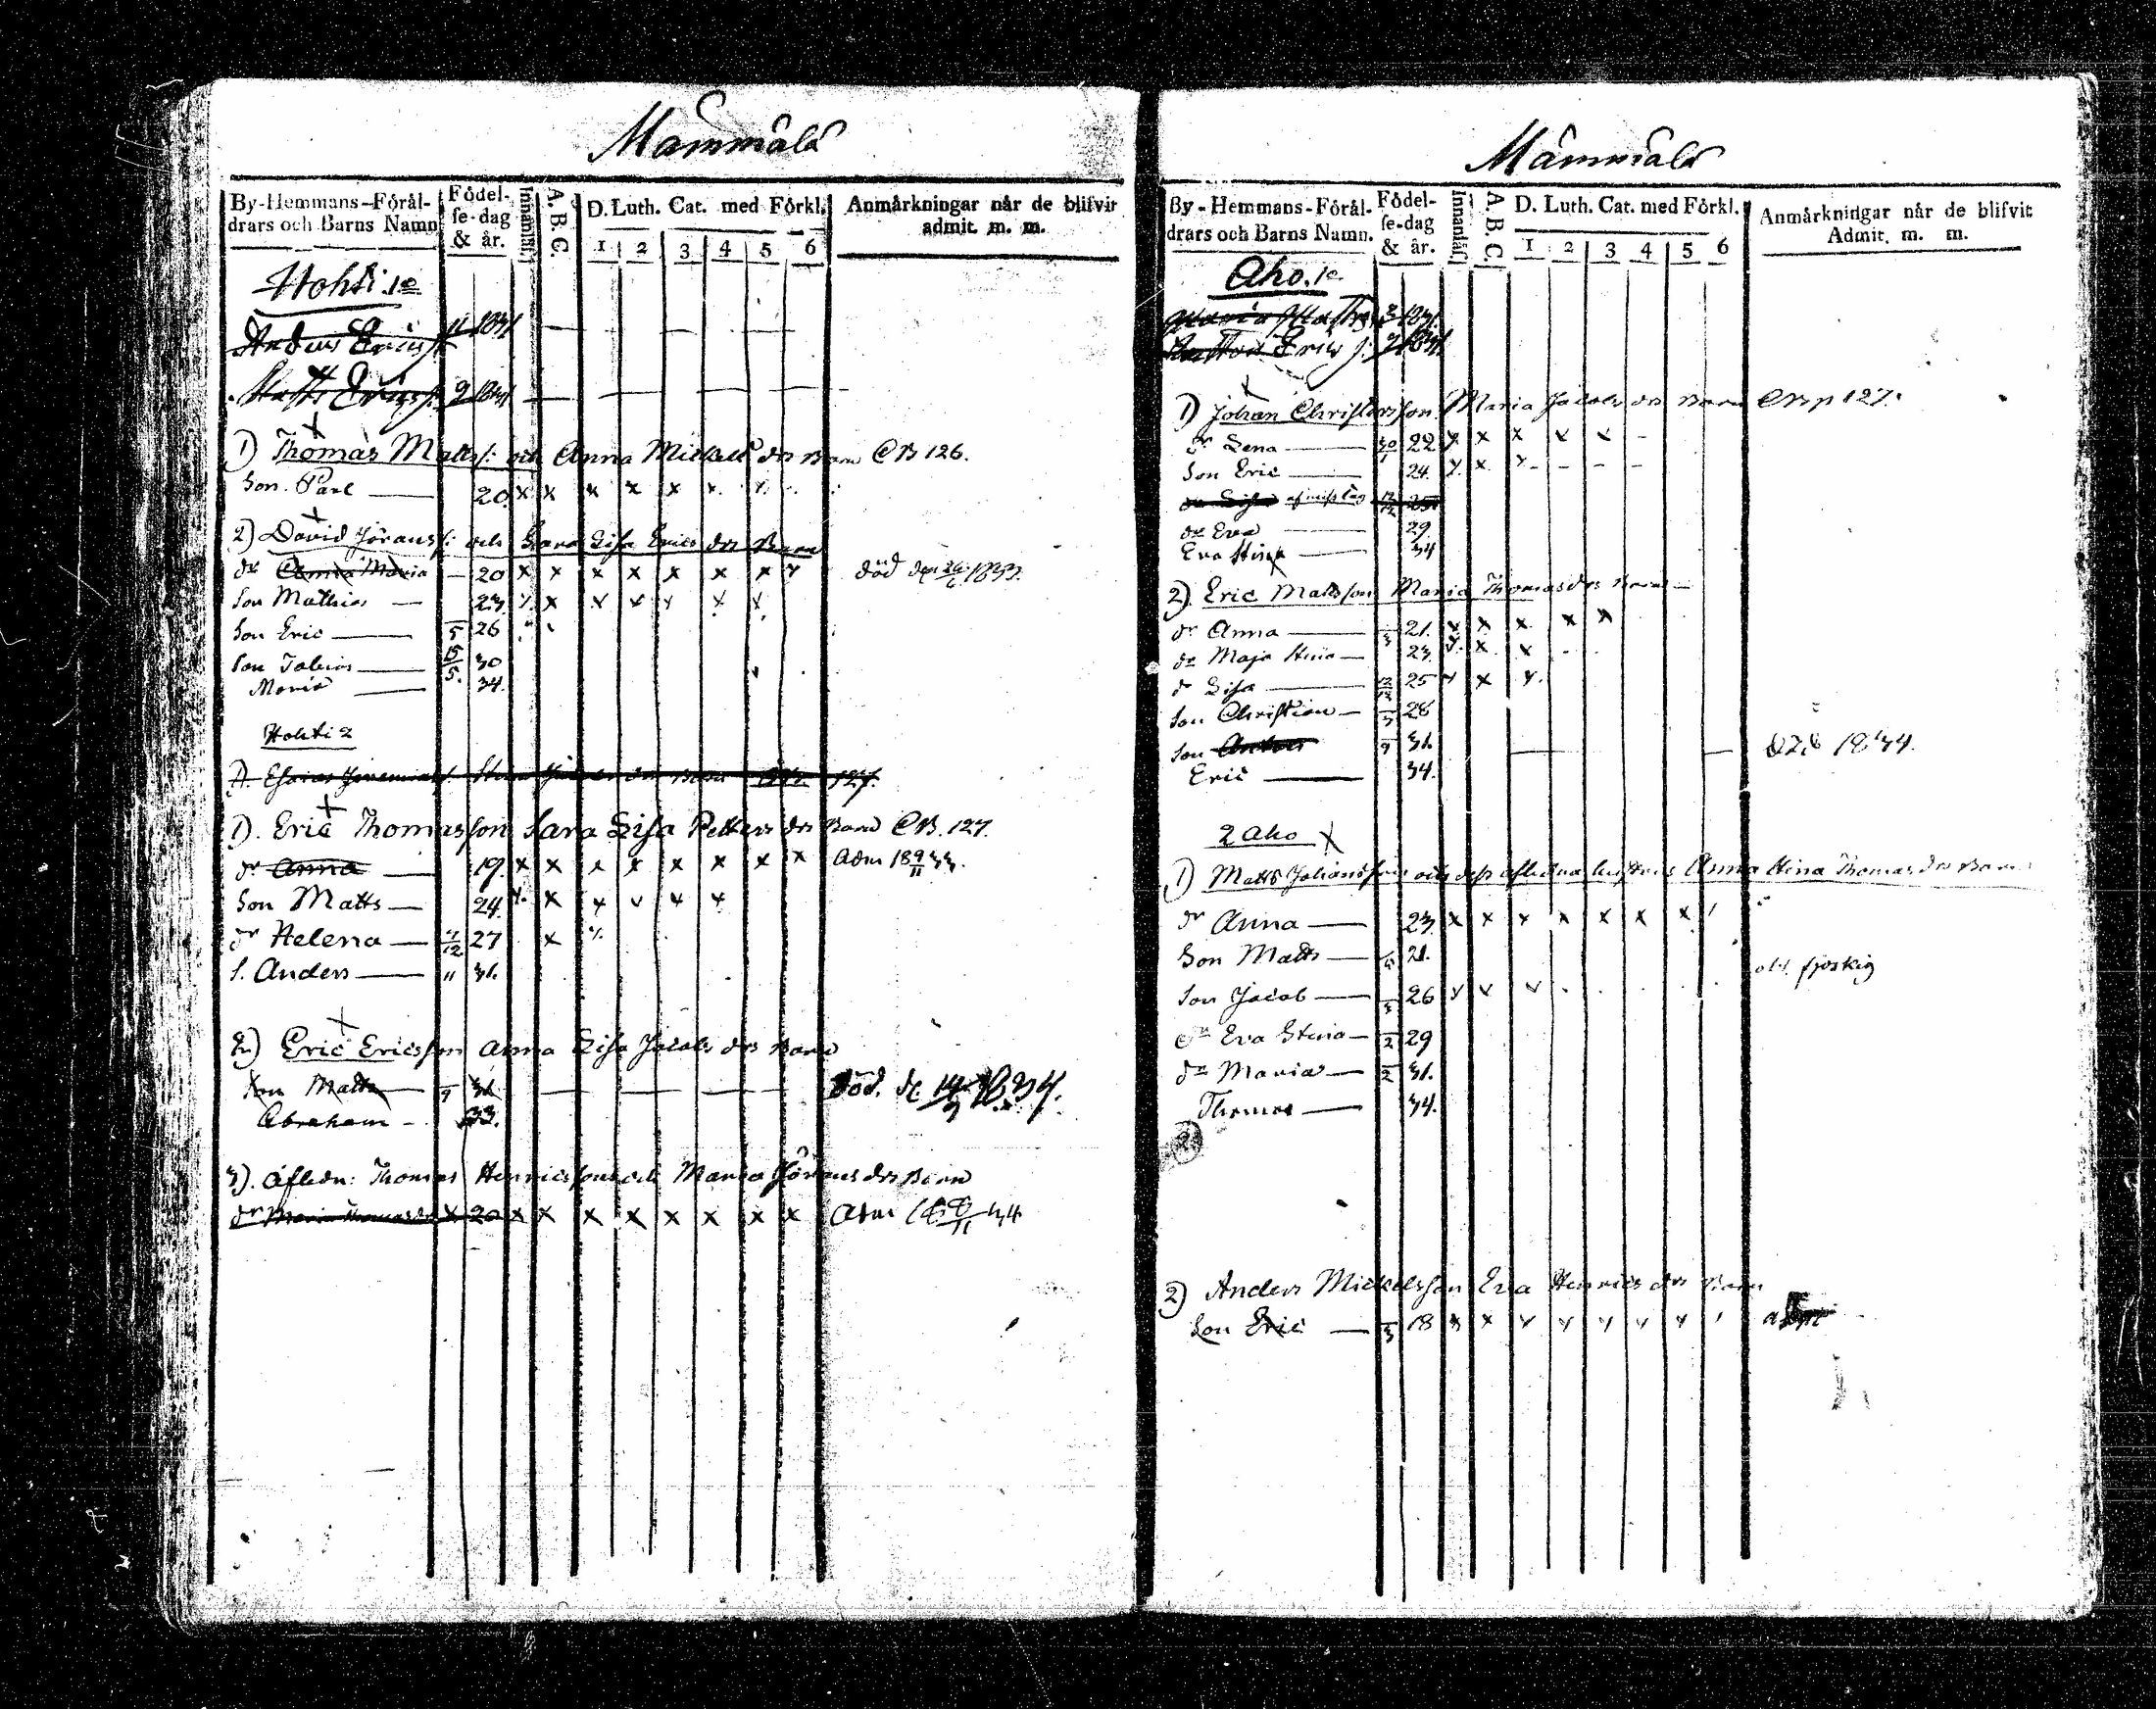 Mammälä
By-Hemmans-Föräl- drars och Barns Namn
Födel- se-dag & år.
Innanläs.
A. B. C.
D. Luth. Cat. med Förkl.
1 2 3 4 5 6
Anmärkningar når de blifvit admit. m. m.
Hohti 1e
Anders Ericss: 11 1831
Matts Ericss: 9 1831
1) Thomas Matts: och Anna Mickels dr Barn CB 126.
Son Parl 20 x x x x x x x
2) David Jörans: och Sara Lisa Erics dr Barn
dr Anna Maria 20 x x x x x x x x död den 26/6 1833.
Son Mathias 23 x x x x x x x
Son Eric 5 26
Son Tobias 15/5 30
Maria 34.
Hohti 2
127.
1). Eric Thomasson Sara Lisa Petters dr Barn CB. 127.
dr Anna 19 x x x x x x x x Adm 18 9/11 33.
Son Matts 24. x x x x x x
dr Helena 7/12 27 x x
S. Anders 11 31.
2) Eric Ericsson Anna Lisa Jacobs dr Barn
Son Matts 9 31 Död. de 14/9 1834.
Abraham 33.
3). Afledn: Thomas Henricssons och Maria Jörans dr Barn
dr Maria Thomasdr x 20 x x x x x x x x Adm 18 9/11 34
Mämmälä
By-Hemmans-Föräl- drars och Barns Namn.
Födel- se-dag & år.
Innanläs
A B. C.
D. Luth. Cat. med Förkl.
1 2 3 4 5 6
Anmärkningar når de blifvit Admit. m. m.
Aho. 1e
1) Johan Christersson Maria Jacobs dr Barn CB p 127.
dr Lena 30/1 22 x x x x x
Son Eric 24. x x x
dr Lisa 12/12 25
dr Eva 29.
Eva Stina 34
2). Eric Mattsson Maria Thomas dr Barn
dr Anna 3 21. x x x x x
dr Maja Stina 23. x x x
dr Lisa 12/12 25 x x x
Son Christian 3 28
Son Anders 9 31.
Eric 34.
2 Aho
1) Matts Johansson och dess afledna hustrus Anna Stina Thomas dr Barn
dr Anna 23. x x x x x x x
Son Matts 21.
Son Jacob 3 26 x x x
dr Eva Stina 2 29
dr Maria 2 31.
Thomas 34.
2) Anders Mickelsson Eva Henrics dr Barn
Son Eric 3 18 x x x x x x x